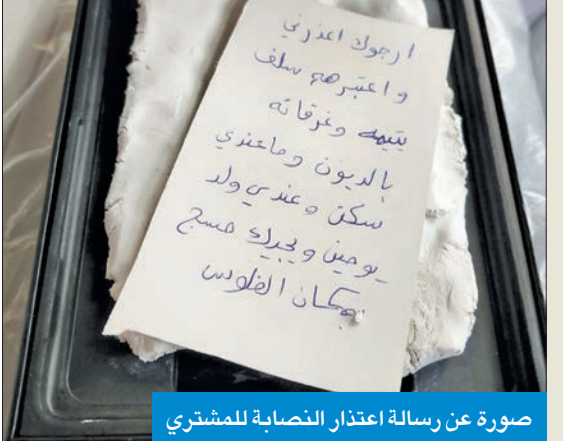 ارجوك اعذرني
و اعتبرهه سلف
يتيمه وغرقانه
بالديون وماعندي
سكن وعندي ولد
يومين ويجيك مسج
بمكان الفلوس
صورة عن رسالة اعتذار النصابة للمشتري